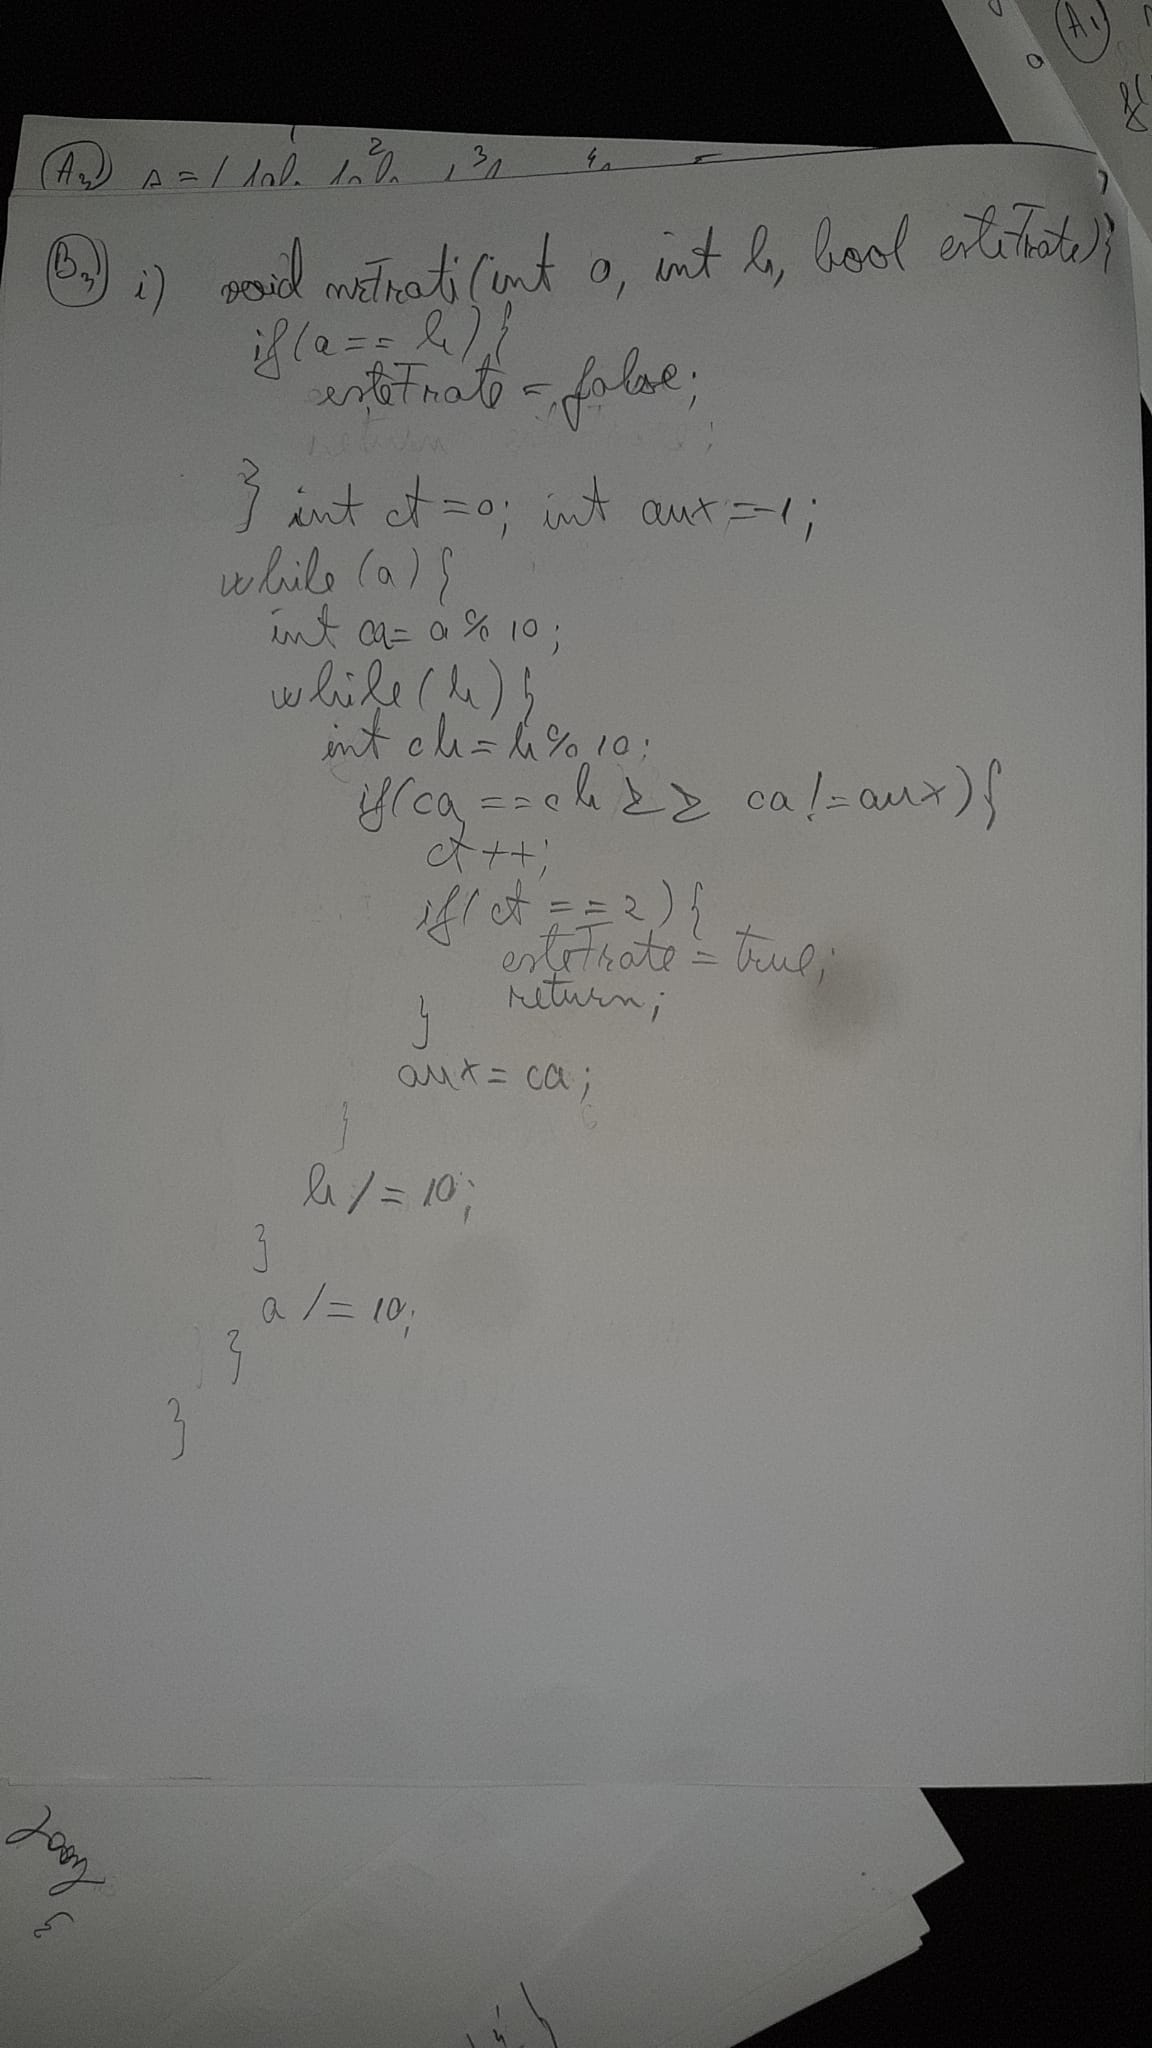 A3) s = 1
B3) i) void nrFrati(int a, int b, bool esteFrate){
if(a == b){
esteFrate = false;
} int ct = 0; int aux = -1;
while(a){
int ca = a % 10;
while(b){
int cb = b % 10;
if(ca == cb && ca != aux){
ct++;
if(ct == 2){
esteFrate = true;
return;
}
aux = ca;
}
b /= 10;
}
a /= 10;
}
}